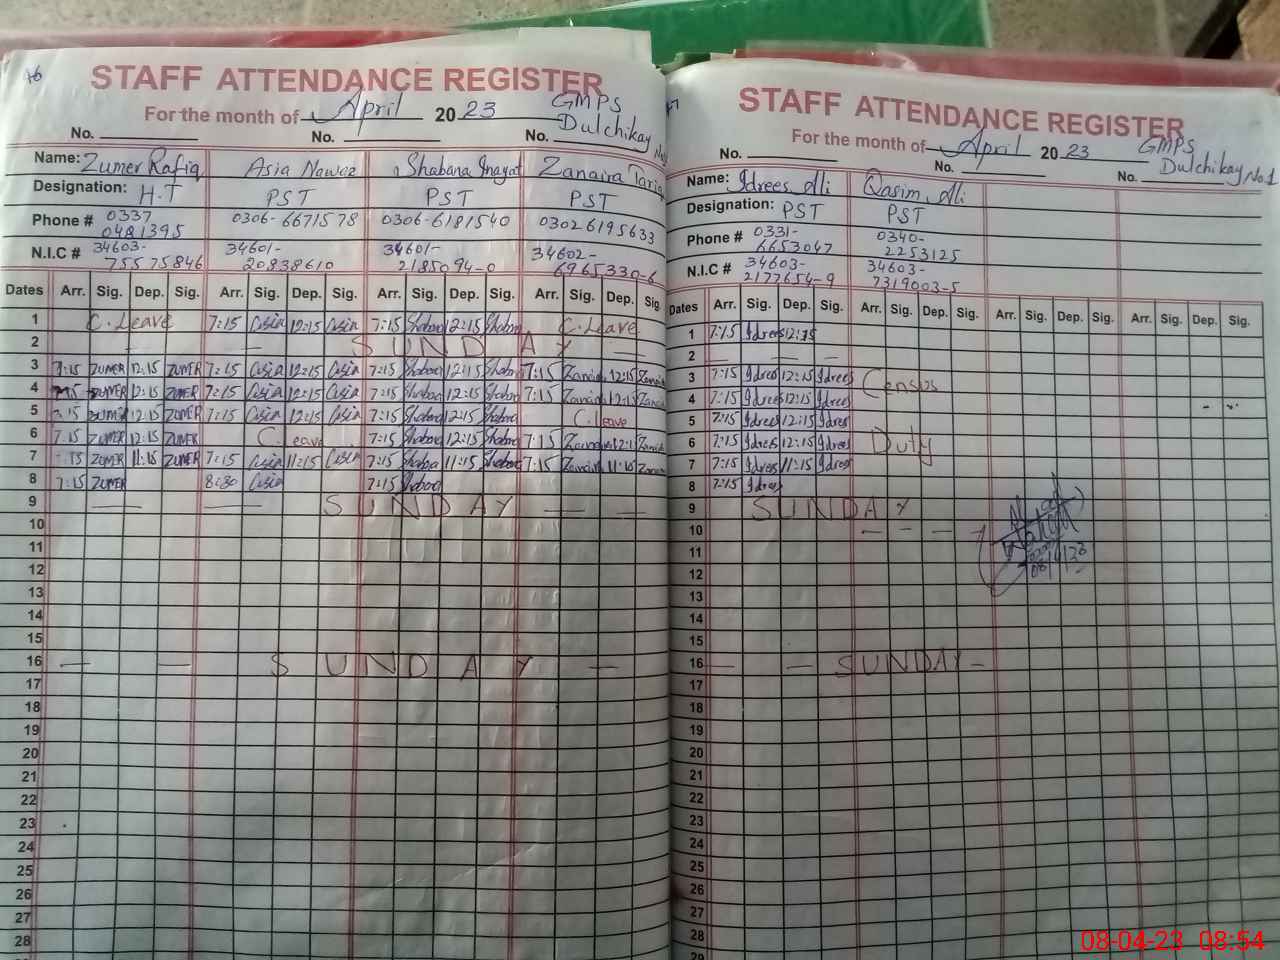 46
STAFF ATTENDANCE REGISTER
For the month of April 2023 GMPS
No. No. No. Dulchikay No.1
Name: Zumer Rafiq Asia Nawaz Shabana Inayat Zanaira Tariq
Designation: H.T PST PST PST
Phone # 0337 0481395 0306-6671578 0306-6181540 03026195633
N.I.C # 34603- 34601- 34601- 34602-
75575846 20838610 2185094-0 6965330-6
Dates Arr. Sig. Dep. Sig. Arr. Sig. Dep. Sig. Arr. Sig. Dep. Sig. Arr. Sig. Dep. Sig.
1 C. Leave 7:15 Asia 12:15 Asia 7:15 Shabana 12:15 Shabana C. Leave
2 — — SUNDAY —
3 7:15 ZUMER 12:15 ZUMER 7:15 Asia 12:15 Asia 7:15 Shabana 12:15 Shabana 7:15 Zanaira 12:15 Zanaira
4 7:15 ZUMER 12:15 ZUMER 7:15 Asia 12:15 Asia 7:15 Shabana 12:15 Shabana 7:15 Zanaira 12:15 Zanaira
5 7:15 ZUMER 12:15 ZUMER 7:15 Asia 12:15 Asia 7:15 Shabana 12:15 Shabana C. Leave
6 7:15 ZUMER 12:15 ZUMER C. Leave 7:15 Shabana 12:15 Shabana 7:15 Zanaira 12:15 Zanaira
7 7:15 ZUMER 11:15 ZUMER 7:15 Asia 11:15 Asia 7:15 Shabana 11:15 Shabana 7:15 Zanaira 11:15 Zanaira
8 7:15 ZUMER 8:30 Asia 7:15 Shabana
9 — — SUNDAY — —
10
11
12
13
14
15
16 — — SUNDAY —
17
18
19
20
21
22
23
24
25
26
27
28
47
STAFF ATTENDANCE REGISTER
For the month of April 2023 GMPS
No. No. No. Dulchikay No.1
Name: Idrees Ali Qasim Ali
Designation: PST PST
Phone # 0331- 0340-
6653047 2253125
N.I.C # 34603- 34603-
2177654-9 7319003-5
Dates Arr. Sig. Dep. Sig. Arr. Sig. Dep. Sig. Arr. Sig. Dep. Sig. Arr. Sig. Dep. Sig.
1 7:15 Idrees 12:15
2 — — —
3 7:15 Idrees 12:15 Idrees Census
4 7:15 Idrees 12:15 Idrees
5 7:15 Idrees 12:15 Idrees
6 7:15 Idrees 12:15 Idrees Duty
7 7:15 Idrees 11:15 Idrees
8 7:15 Idrees
9 SUNDAY
10 — — —
11
12 08/4/23
13
14
15
16 — — SUNDAY —
17
18
19
20
21
22
23
24
25
26
27
28
08-04-23 08:54